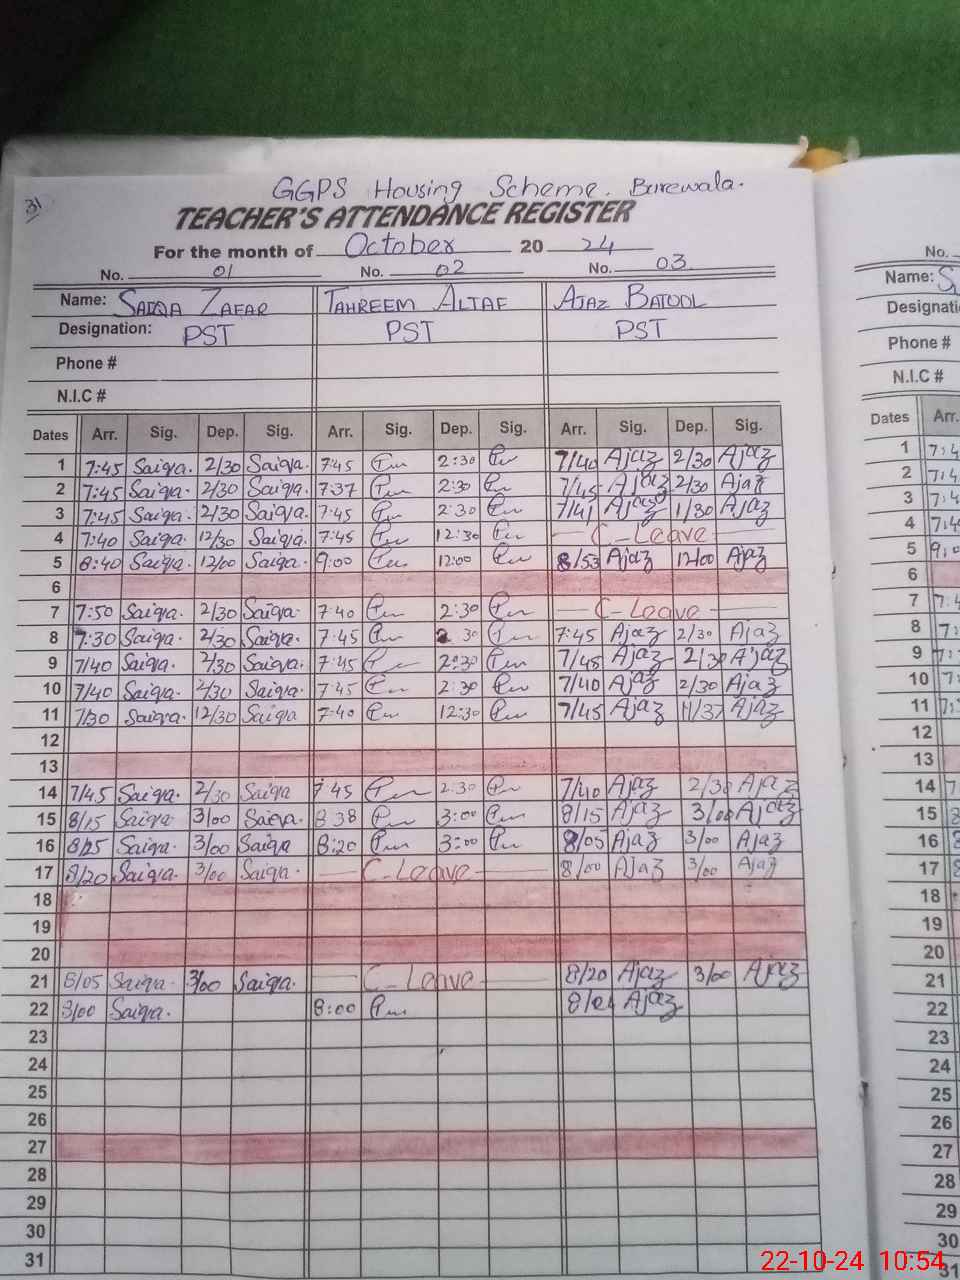 31
GGPS Housing Scheme. Burewala.
TEACHER'S ATTENDANCE REGISTER
For the month of October 20 24
No. 01 No. 02 No. 03
Name: SAIQA ZAFAR TAHREEM ALTAF AJAZ BATOOL
Designation: PST PST PST
Phone #
N.I.C #
Dates Arr. Sig. Dep. Sig. Arr. Sig. Dep. Sig. Arr. Sig. Dep. Sig.
1 7:45 Saiqa. 2/30 Saiqa. 7:45 2:30 7/40 Ajaz 2/30 Ajaz
2 7:45 Saiqa. 2/30 Saiqa. 7:37 2:30 7/45 Ajaz 2/30 Ajaz
3 7:45 Saiqa. 2/30 Saiqa. 7:45 2:30 7/41 Ajaz 1/30 Ajaz
4 7:40 Saiqa. 12/30 Saiqa. 7:45 12:30 C-Leave
5 8:40 Saiqa. 12/00 Saiqa. 9:00 12:00 8/53 Ajaz 12/00 Ajaz
6
7 7:50 Saiqa. 2/30 Saiqa. 7:40 2:30 C-Leave
8 7:30 Saiqa. 2/30 Saiqa. 7:45 30 7:45 Ajaz 2/30 Ajaz
9 7/40 Saiqa. 2/30 Saiqa. 7:45 2:30 7/45 Ajaz 2/30 Ajaz
10 7/40 Saiqa. 2/30 Saiqa. 7:45 2:30 7/40 Ajaz 2/30 Ajaz
11 7/30 Saiqa. 12/30 Saiqa 7:40 12:30 7/45 Ajaz 11/37 Ajaz
12
13
14 7/45 Saiqa. 2/30 Saiqa 7:45 2:30 7/40 Ajaz 2/30 Ajaz
15 8/15 Saiqa. 3/00 Saiqa. 8 38 3:00 8/15 Ajaz 3/00 Ajaz
16 Saiqa. 3/00 Saiqa 8:20 3:00 8/05 Ajaz 3/00 Ajaz
17 8/20 Saiqa. 3/00 Saiqa. C-Leave 8/00 Ajaz 3/00 Ajaz
18
19
20
21 8/05 Saiqa. 3/00 Saiqa. C-Leave 8/20 Ajaz 3/00 Ajaz
22 8/00 Saiqa. 8:00 Ajaz
23
24
25
26
27
28
29
30
31
No.
Name:
Phone #
N.I.C #
Dates Arr.
1
2
3
4
5
6
7
8
9
10
11
12
13
14
15
16
17
18
19
20
21
22
23
24
25
26
27
28
29
30
31
22-10-24 10:54